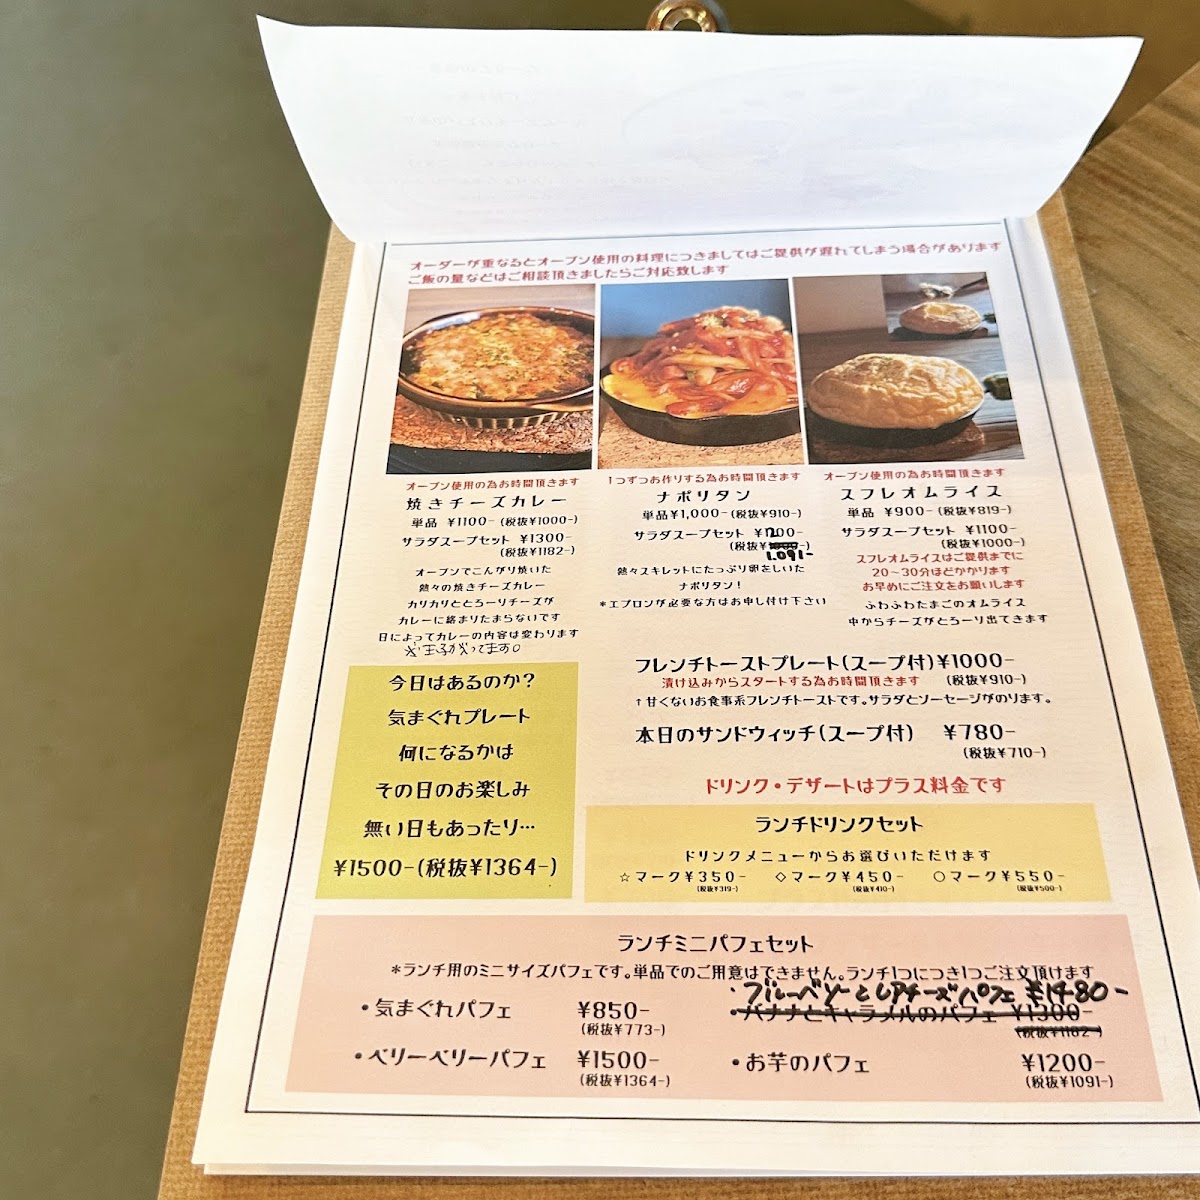 オーダーが重なるとオーブン使用の料理につきましてはご提供が遅れてしまう場合があります
ご飯の量などはご相談頂きましたらご対応致します
オーブン使用の為お時間頂きます
焼きチーズカレー
単品 ¥1100-(税抜¥1000-)
サラダスープセット ¥1300-
(税抜¥1182-)
オーブンでこんがり焼いた
熱々の焼きチーズカレー
カリカリととろーりチーズが
カレーに絡まりたまらないです
日によってカレーの内容は変わります
1つずつお作りする為お時間頂きます
ナポリタン
単品¥1,000-(税抜¥910-)
サラダスープセット ¥1200-
(税抜¥1000-)
1.091-
熱々スキレットにたっぷり卵をしいた
ナポリタン!
*エプロンが必要な方はお申し付け下さい
オーブン使用の為お時間頂きます
スフレオムライス
単品 ¥900-(税抜¥819-)
サラダスープセット ¥1100-
(税抜¥1000-)
スフレオムライスはご提供までに
20〜30分ほどかかります
お早めにご注文をお願いします
ふわふわたまごのオムライス
中からチーズがとろーり出てきます
フレンチトーストプレート(スープ付)¥1000-
漬け込みからスタートする為お時間頂きます (税抜¥910-)
↑甘くないお食事系フレンチトーストです。サラダとソーセージがのります。
本日のサンドウィッチ(スープ付) ¥780-
(税抜¥710-)
ドリンク・デザートはプラス料金です
今日はあるのか?
気まぐれプレート
何になるかは
その日のお楽しみ
無い日もあったり…
¥1500-(税抜¥1364-)
ランチドリンクセット
ドリンクメニューからお選びいただけます
☆マーク¥350- ◇マーク¥450- ○マーク¥550-
(税抜¥319-) (税抜¥410-) (税抜¥500-)
ランチミニパフェセット
*ランチ用のミニサイズパフェです。単品でのご用意はできません。ランチ1つにつき1つご注文頂けます
・気まぐれパフェ ¥850-
(税抜¥773-)
・ブルーベリーとレアチーズパフェ ¥1480-
・バナナとキャラメルのパフェ ¥1300-
(税抜¥1182-)
・ベリーベリーパフェ ¥1500-
(税抜¥1364-)
・お芋のパフェ ¥1200-
(税抜¥1091-)